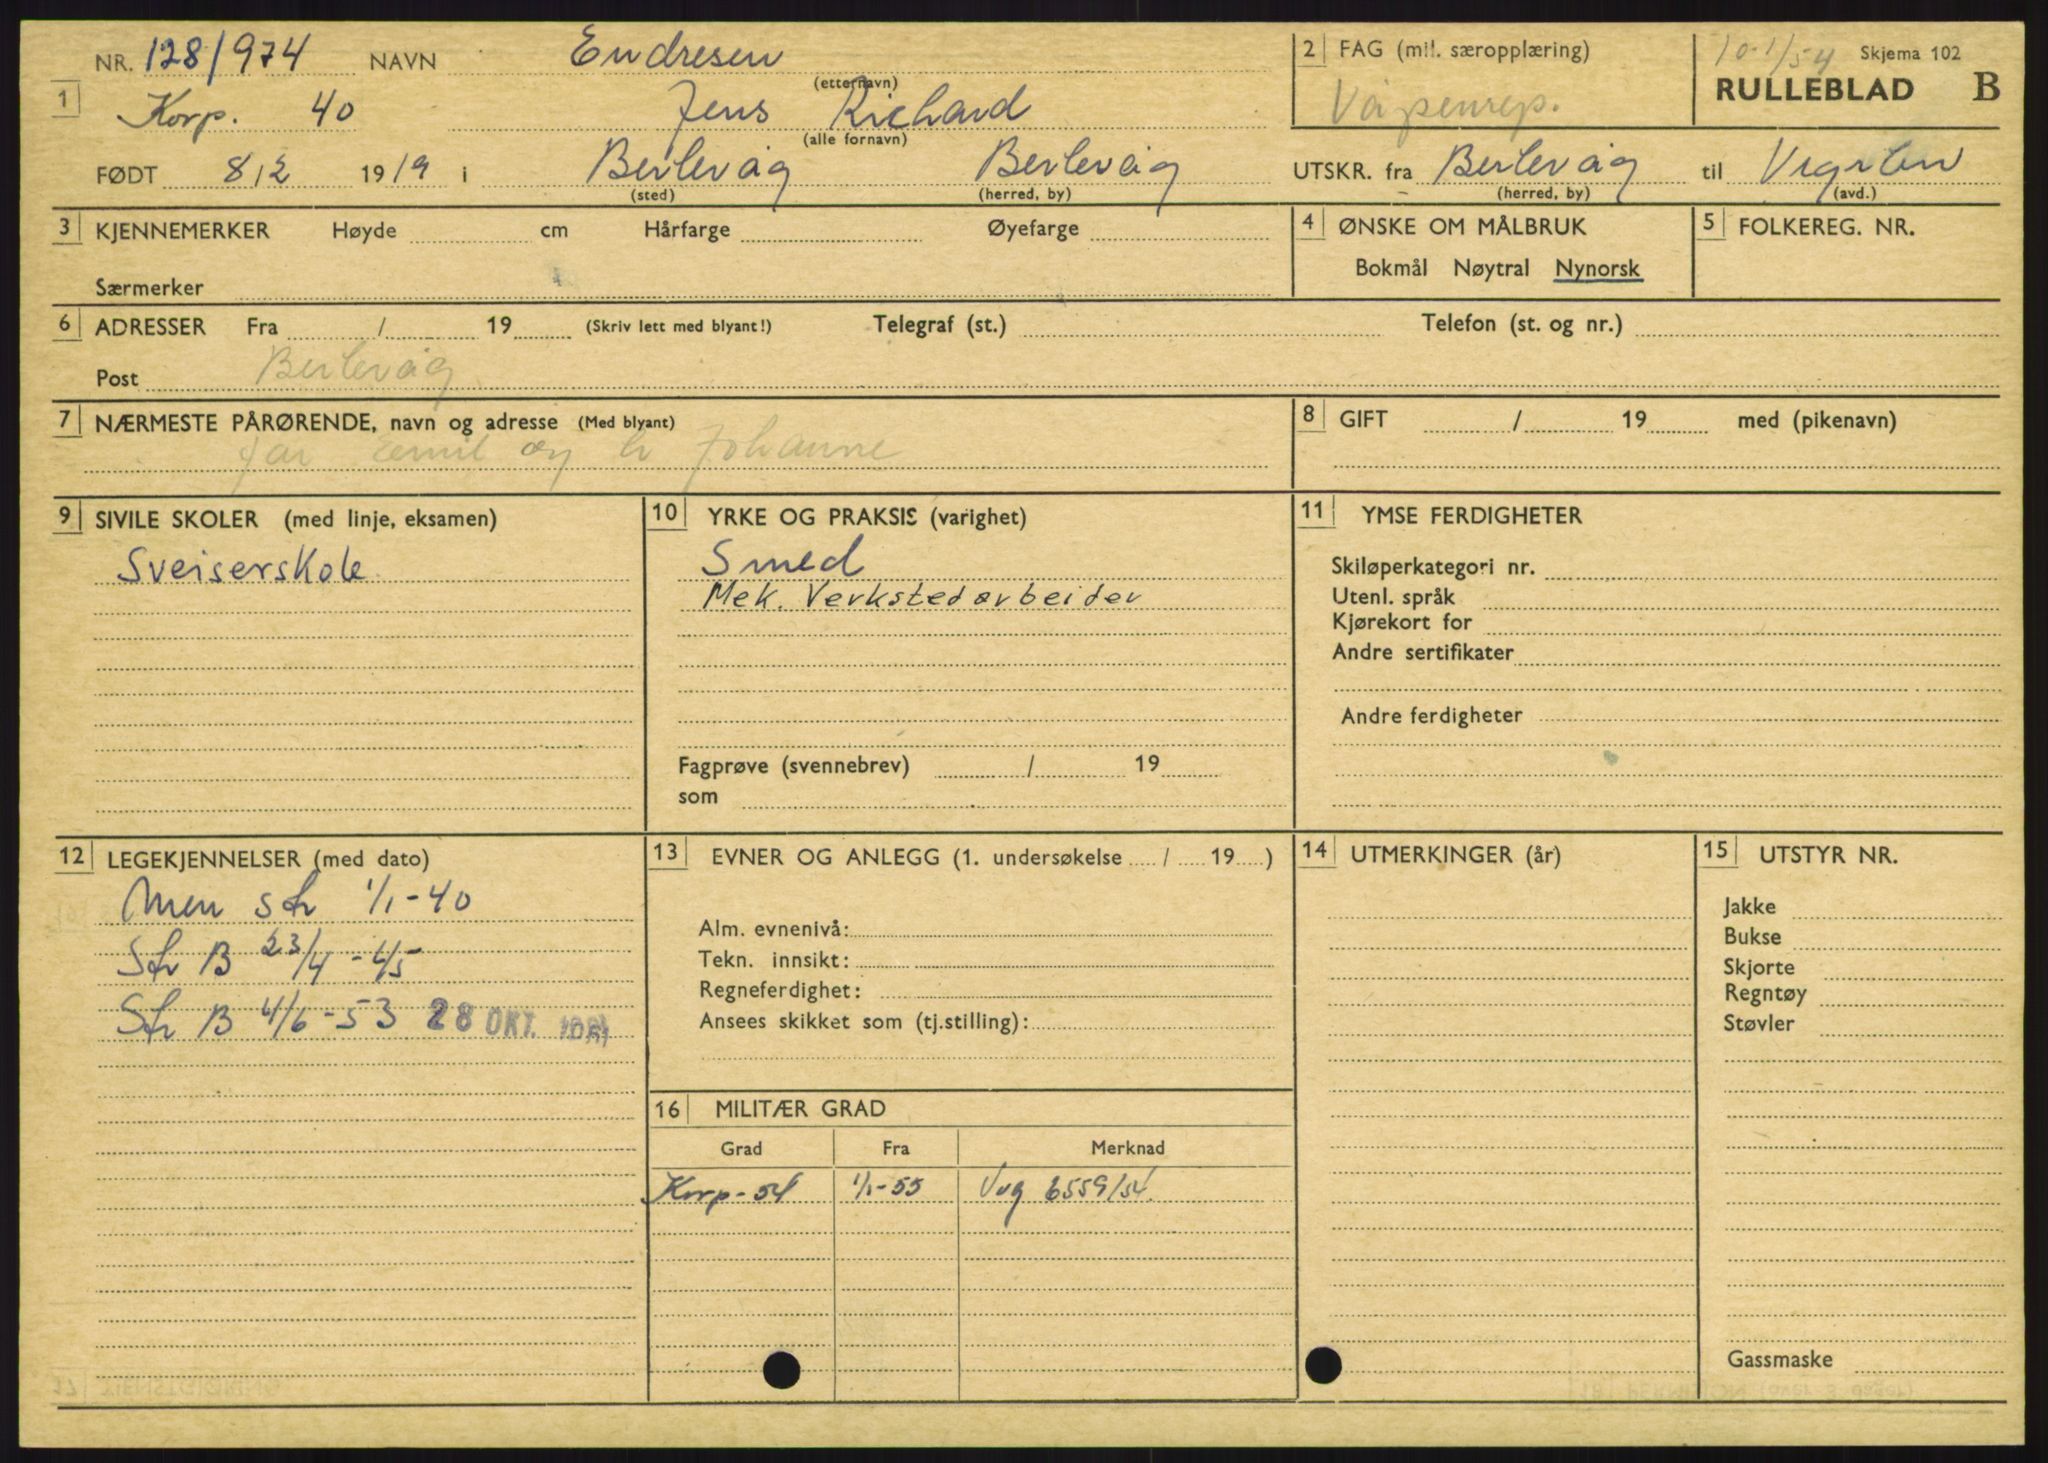 NR. 128/974 NAVN Endresen
(etternavn)
1 Korp. 40 Jens Richard
(alle fornavn)
FØDT 8/2 1919 i Berlevåg Berlevåg
(sted) (herred, by)
2 FAG (mil. særopplæring)
Våpenrep.
10-1/54 Skjema 102
RULLEBLAD B
UTSKR. fra Berlevåg til
(herred, by) (avd.)
3 KJENNEMERKER Høyde cm Hårfarge Øyefarge
Særmerker
4 ØNSKE OM MÅLBRUK
Bokmål Nøytral Nynorsk
5 FOLKEREG. NR.
6 ADRESSER Fra / 19 (Skriv lett med blyant!) Telegraf (st.) Telefon (st. og nr.)
Post Berlevåg
7 NÆRMESTE PÅRØRENDE, navn og adresse (Med blyant)
far Emil og Johanne
8 GIFT / 19 med (pikenavn)
9 SIVILE SKOLER (med linje, eksamen)
Sveiserskole
10 YRKE OG PRAKSIS (varighet)
Smed
Mek. Verkstedarbeider
Fagprøve (svennebrev) / 19
som
11 YMSE FERDIGHETER
Skiløperkategori nr.
Utenl. språk
Kjørekort for
Andre sertifikater
Andre ferdigheter
12 LEGEKJENNELSER (med dato)
1/1-40
B 23/4-45
B 4/6-53 28 OKT.
13 EVNER OG ANLEGG (1. undersøkelse / 19 )
Alm. evnenivå:
Tekn. innsikt:
Regneferdighet:
Ansees skikket som (tj.stilling):
14 UTMERKINGER (år)
15 UTSTYR NR.
Jakke
Bukse
Skjorte
Regntøy
Støvler
Gassmaske
16 MILITÆR GRAD
Grad Fra Merknad
Korp-54 1/1-55 Vug 6559/54.